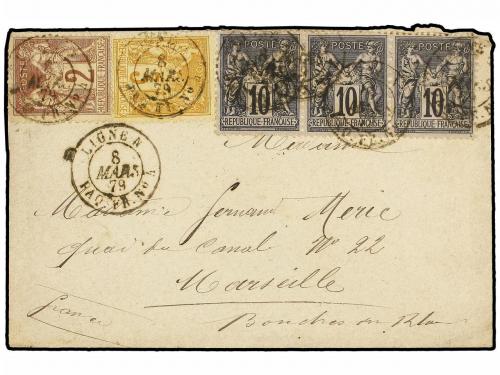 POSTE POSTE POSTE
2 3 10 10 10
REPUBLIQUE FRANÇAISE REPUBLIQUE FRANÇAISE REPUBLIQUE FRANÇAISE
8
MARS
79
LIGNE N
8
MARS
79
PAQ. FR. Nº 4
Madame Fernand Meric
quai du Canal Nº 22
Marseille
france
Bouches du Rhône